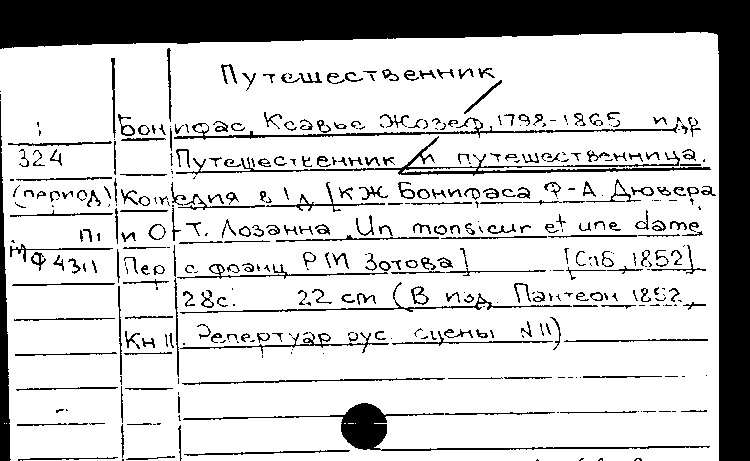 Путешественник
Бонифас, Ксавье Жозеф, 1798-1865 и др
324 Путешественник и путешественница.
(период) Комедия в 1 д [К Ж Бонифаса, Ф-А. Дювера
П1 и О-Т. Лозанна. Un monsieur et une dame
МФ 4311 Пер с франц Р М Зотова] [Спб, 1852]
28с. 22 cm (В изд. Пантеон, 1852,
Кн 11. Репертуар рус. сцены N 11)